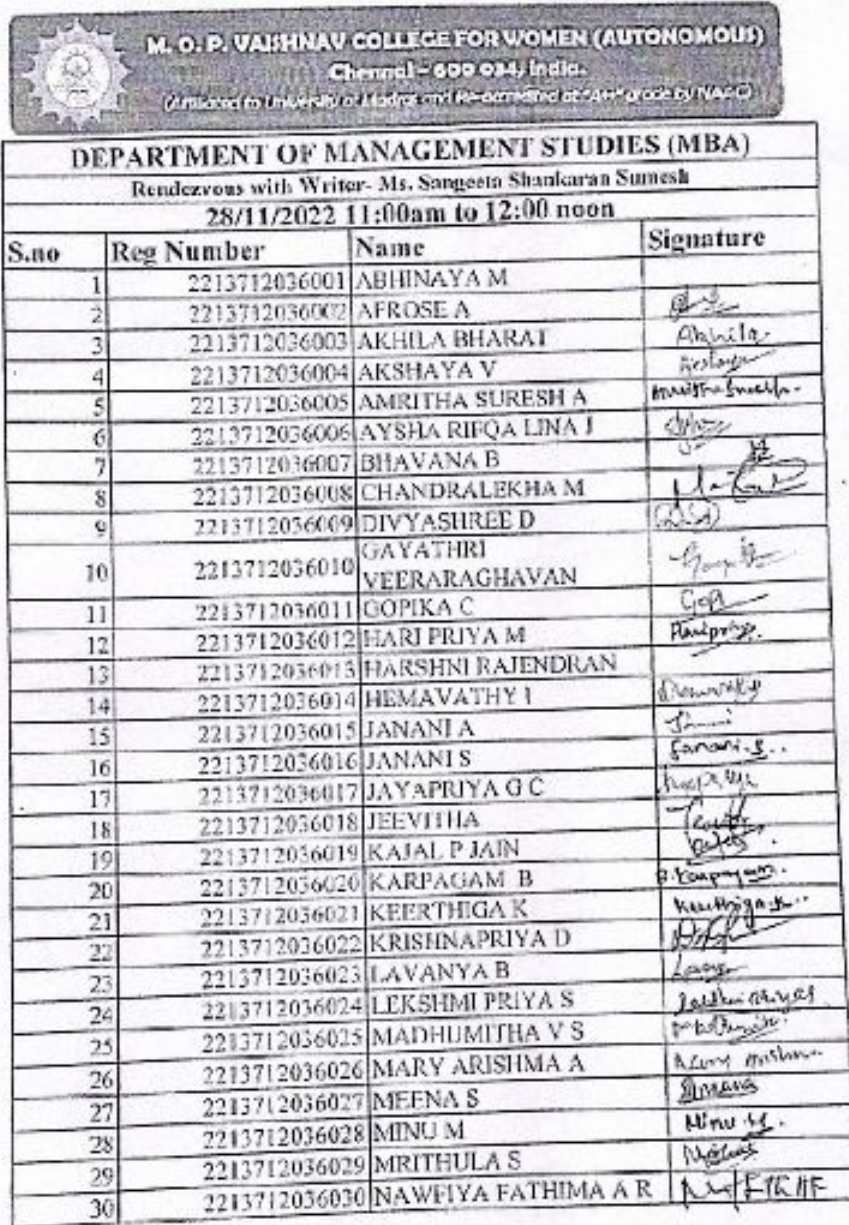 M. O. P. VAISHNAV COLLEGE FOR WOMEN (AUTONOMOUS)
Chennai - 600 034, India.
(Affiliated to University of Madras and Re-accredited at "A++" grade by NAAC)
DEPARTMENT OF MANAGEMENT STUDIES (MBA)
Rendezvous with Writer- Ms. Sangeeta Shankaran Sumesh
28/11/2022 11:00am to 12:00 noon
S.no Reg Number Name Signature
1 2213712036001 ABHINAYA M
2 2213712036002 AFROSE A
3 2213712036003 AKHILA BHARAT Akhila
4 2213712036004 AKSHAYA V Akshaya
5 2213712036005 AMRITHA SURESH A Amritha Suresh
6 2213712036006 AYSHA RIFQA LINA J
7 2213712036007 BHAVANA B
8 2213712036008 CHANDRALEKHA M
9 2213712036009 DIVYASHREE D
10 2213712036010 GAYATHRI VEERARAGHAVAN
11 2213712036011 GOPIKA C Gopi
12 2213712036012 HARI PRIYA M Haripriya
13 2213712036013 HARSHNI RAJENDRAN
14 2213712036014 HEMAVATHY I
15 2213712036015 JANANI A
16 2213712036016 JANANI S Janani.S..
17 2213712036017 JAYAPRIYA G C
18 2213712036018 JEEVITHA
19 2213712036019 KAJAL P JAIN
20 2213712036020 KARPAGAM B B. Karpagam.
21 2213712036021 KEERTHIGA K Keerthiga.K..
22 2213712036022 KRISHNAPRIYA D
23 2213712036023 LAVANYA B
24 2213712036024 LEKSHMI PRIYA S
25 2213712036025 MADHUMITHA V S
26 2213712036026 MARY ARISHMA A Mary Arishma
27 2213712036027 MEENA S
28 2213712036028 MINU M Minu.M.
29 2213712036029 MRITHULA S
30 2213712036030 NAWFIYA FATHIMA A R